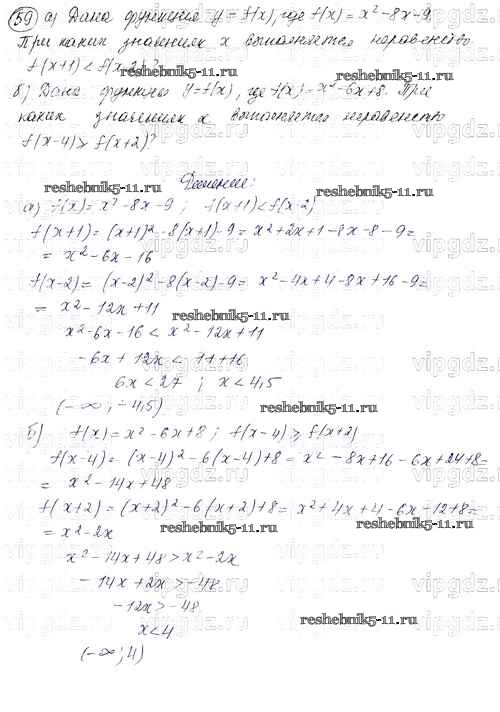 59) а) Дана функция y = f(x), где f(x) = x² - 8x - 9.
При каких значениях x выполняется неравенство
f(x+1) < f(x-2)?
reshebnik5-11.ru
б) Дана функция y = f(x), где f(x) = x² - 6x + 8. При
каких значениях x выполняется неравенство
f(x-4) > f(x+2)?
Решение:
reshebnik5-11.ru
а) f(x) = x² - 8x - 9 ; f(x+1) < f(x-2)
reshebnik5-11.ru
f(x+1) = (x+1)² - 8(x+1) - 9 = x² + 2x + 1 - 8x - 8 - 9 =
= x² - 6x - 16
f(x-2) = (x-2)² - 8(x-2) - 9 = x² - 4x + 4 - 8x + 16 - 9 =
= x² - 12x + 11
reshebnik5-11.ru
x² - 6x - 16 < x² - 12x + 11
- 6x + 12x < 11 + 16
6x < 27 ; x < 4,5
(-∞; -4,5)
reshebnik5-11.ru
б) f(x) = x² - 6x + 8 ; f(x-4) > f(x+2)
f(x-4) = (x-4)² - 6(x-4) + 8 = x² - 8x + 16 - 6x + 24 + 8 =
= x² - 14x + 48
reshebnik5-11.ru
f(x+2) = (x+2)² - 6(x+2) + 8 = x² + 4x + 4 - 6x - 12 + 8 =
= x² - 2x
reshebnik5-11.ru
x² - 14x + 48 > x² - 2x
- 14x + 2x > -48
- 12x > -48
reshebnik5-11.ru
x < 4
(-∞; 4)